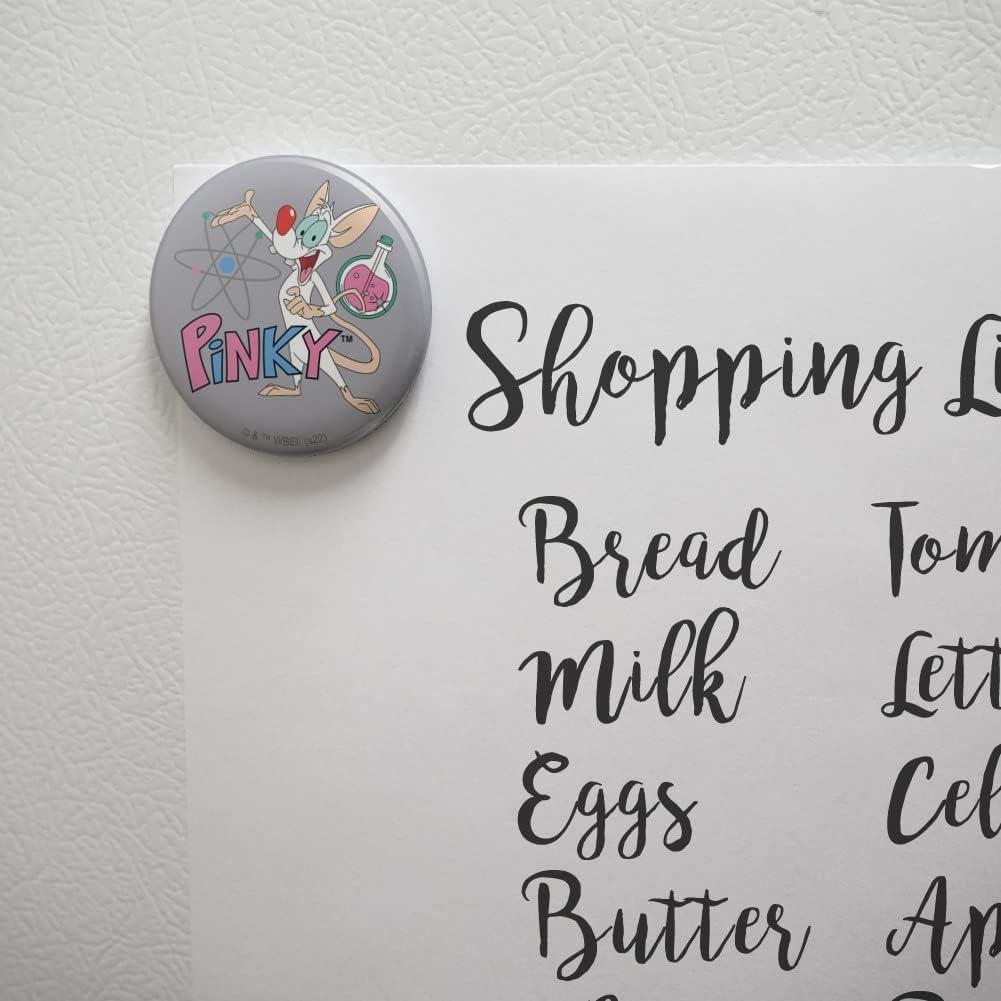 PINKY™
© & ™ WBEI. (s22)
Shopping Li
Bread Tom
Milk Lett
Eggs Cel
Butter Ap